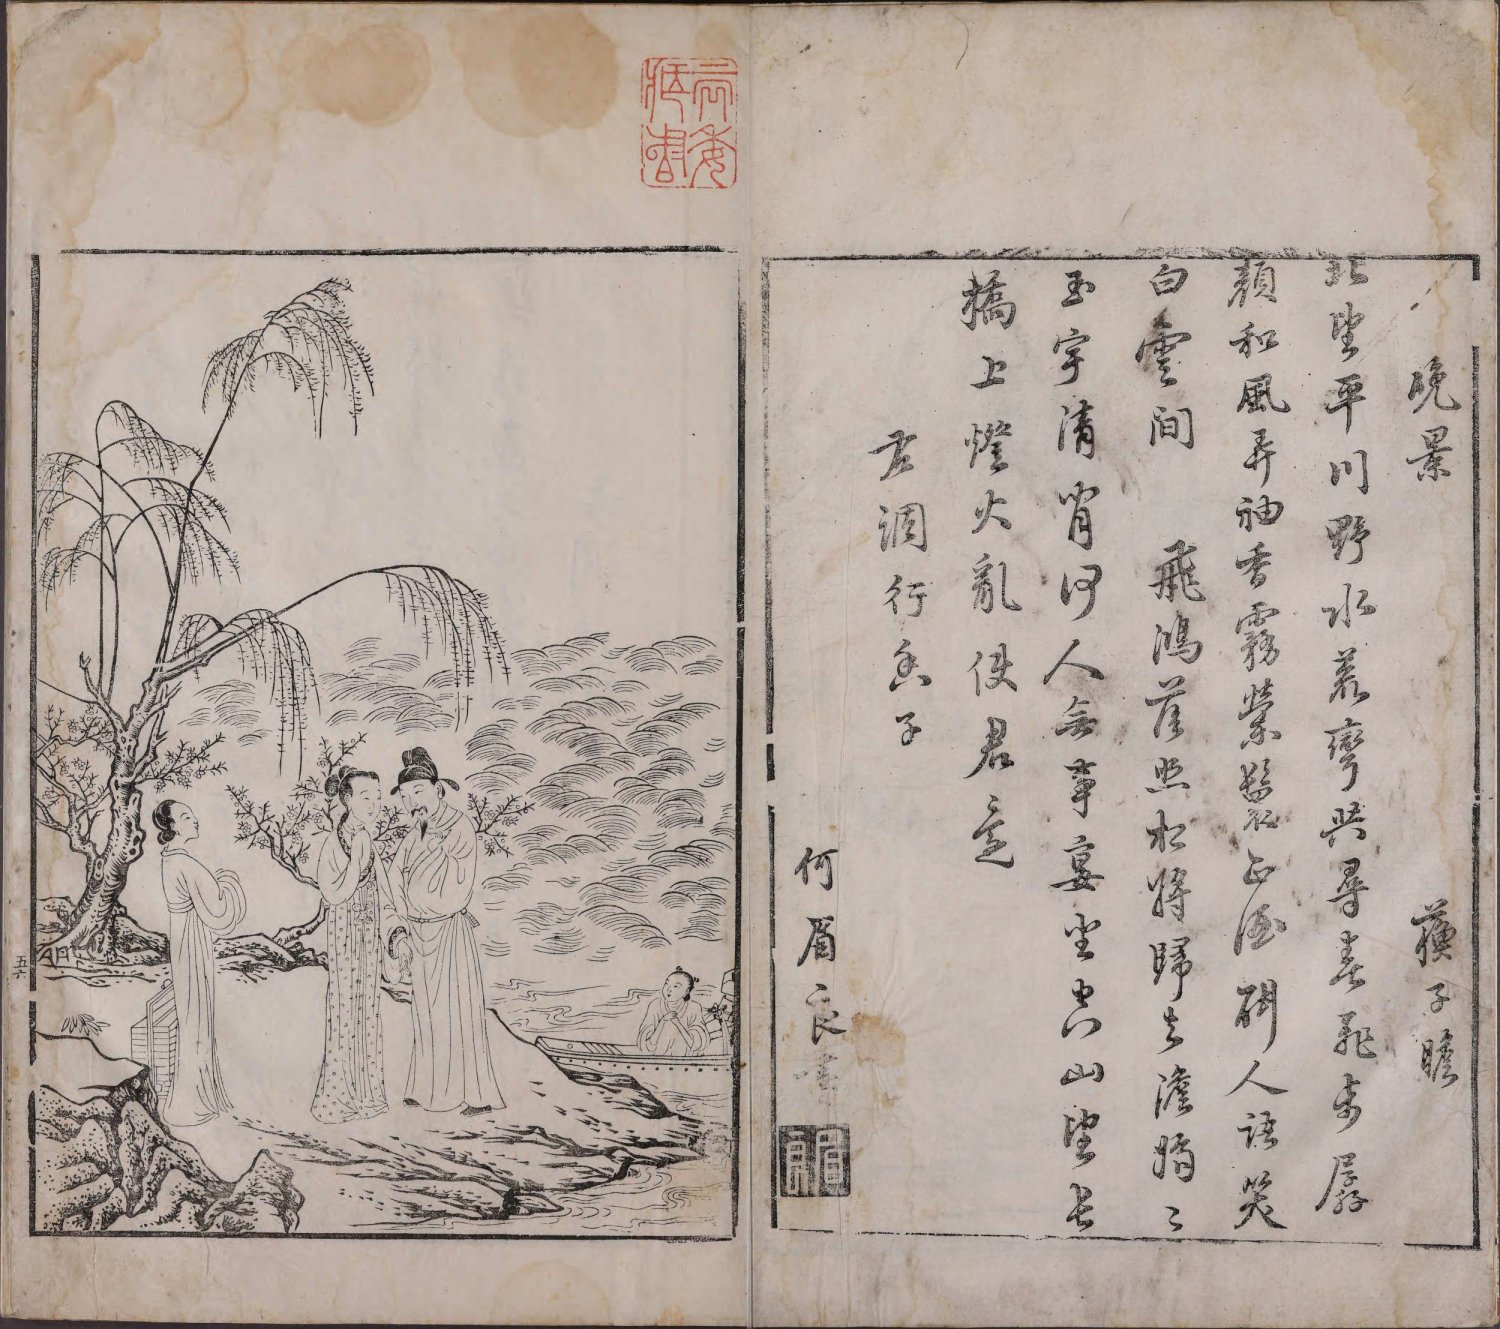 晚景
蘇子瞻
北望平川野水荒灣共尋春飛步孱
顏和風弄袖香霧縈鬟正酒酣人語笑
白雲間 飛鴻落照相將歸去澹娟〻
玉宇清宵何人無事宴坐空山望長
橋上燈火亂使君還
右調行香子
何眉良書
五六